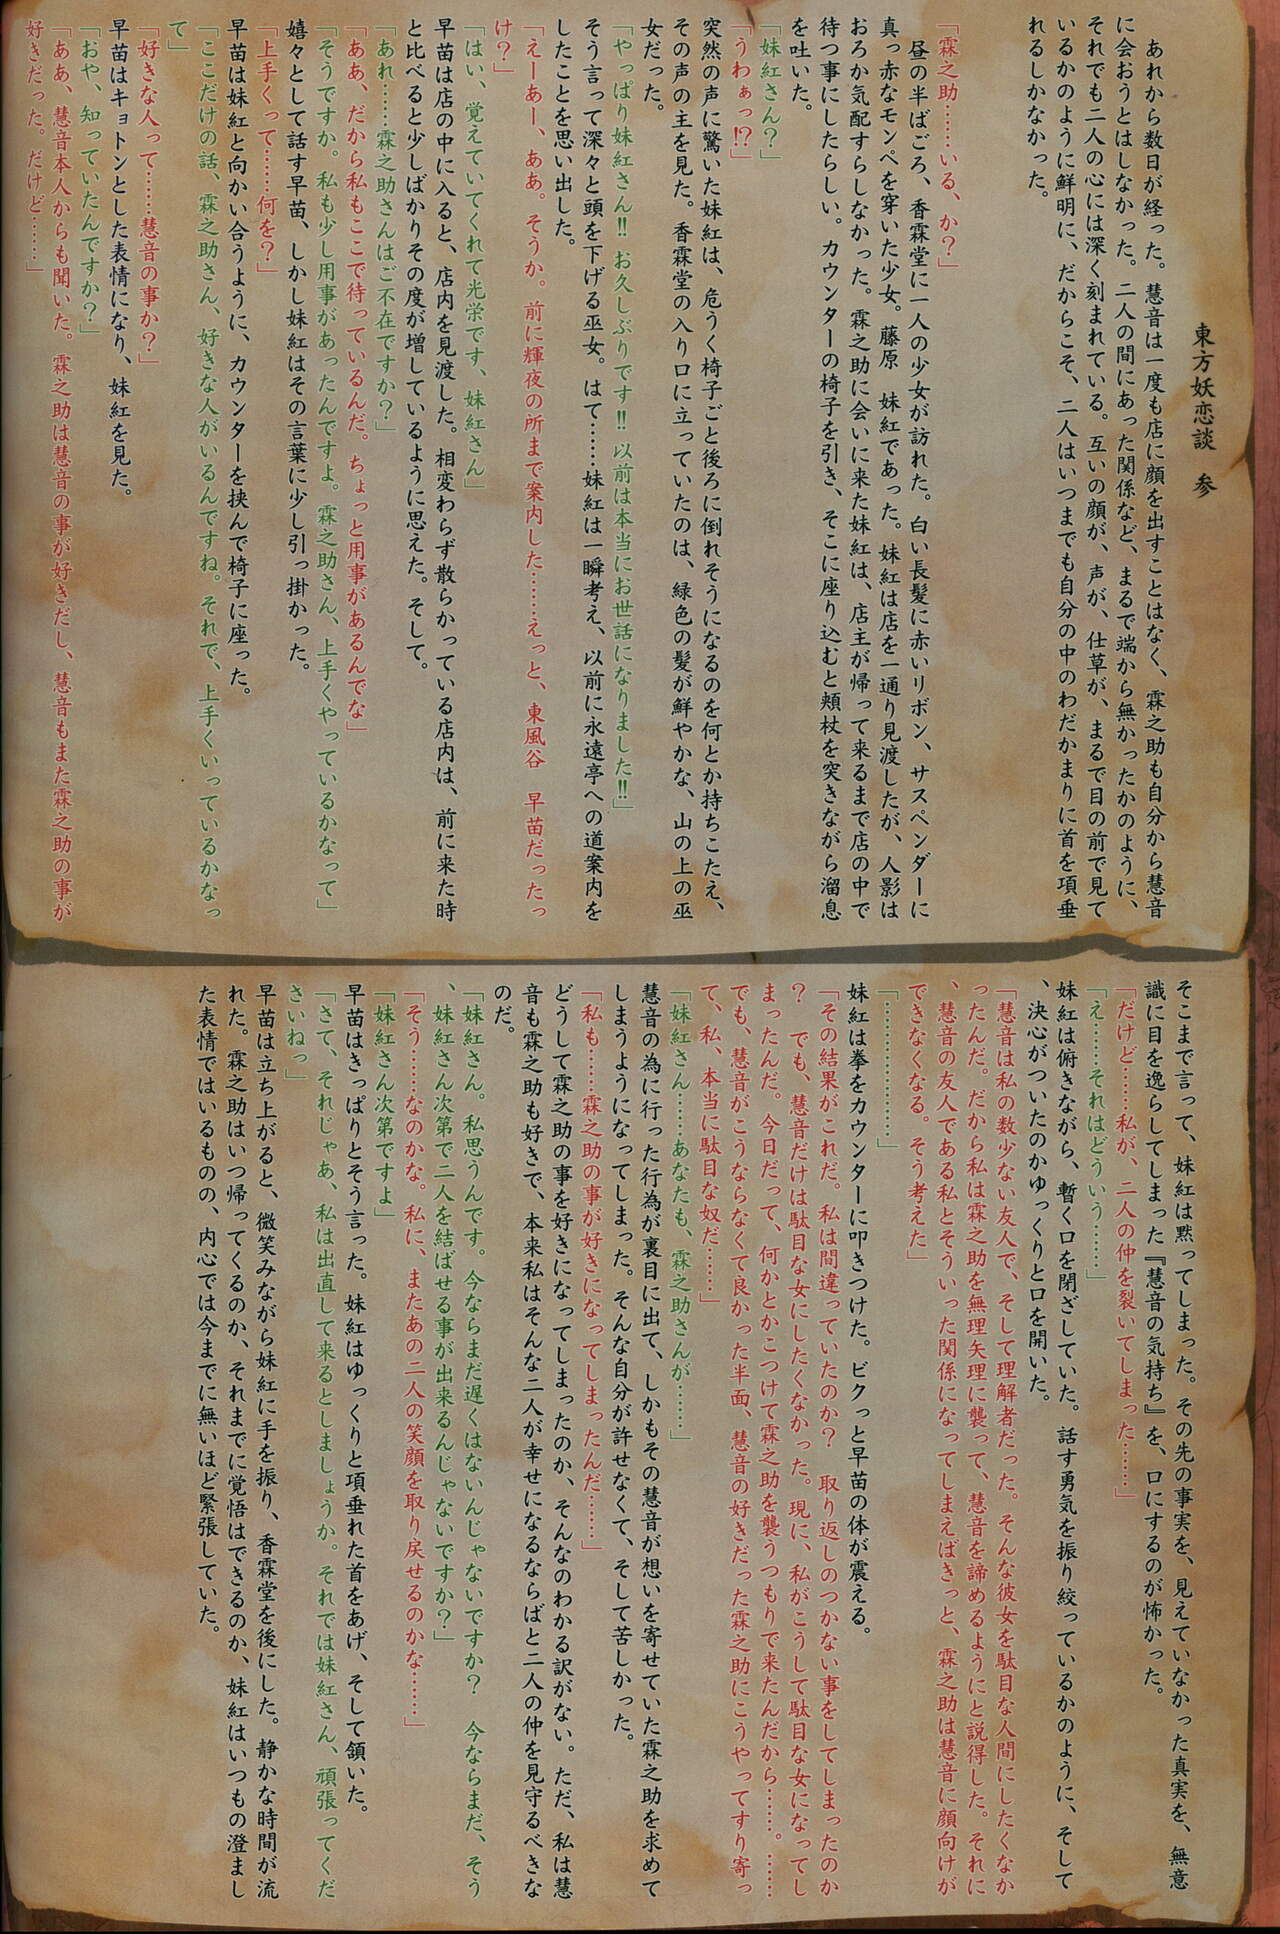 東方妖恋談　参
あれから数日が経った。慧音は一度も店に顔を出すことはなく、霖之助も自分から慧音
に会おうとはしなかった。二人の間にあった関係など、まるで端から無かったかのように、
それでも二人の心には深く刻まれている。互いの顔が、声が、仕草が、まるで目の前で見て
いるかのように鮮明に、だからこそ、二人はいつまでも自分の中のわだかまりに首を項垂
れるしかなかった。
「霖之助……いる、か？」
昼の半ばごろ、香霖堂に一人の少女が訪れた。白い長髪に赤いリボン、サスペンダーに
真っ赤なモンペを穿いた少女。藤原　妹紅であった。妹紅は店を一通り見渡したが、人影は
おろか気配すらしなかった。霖之助に会いに来た妹紅は、店主が帰って来るまで店の中で
待つ事にしたらしい。カウンターの椅子を引き、そこに座り込むと頬杖を突きながら溜息
を吐いた。
「妹紅さん？」
「うわぁっ!?」
突然の声に驚いた妹紅は、危うく椅子ごと後ろに倒れそうになるのを何とか持ちこたえ、
その声の主を見た。香霖堂の入り口に立っていたのは、緑色の髪が鮮やかな、山の上の巫
女だった。
「やっぱり妹紅さん!! お久しぶりです!! 以前は本当にお世話になりました!!」
そう言って深々と頭を下げる巫女。はて……妹紅は一瞬考え、以前に永遠亭への道案内を
したことを思い出した。
「えーあー、ああ。そうか。前に輝夜の所まで案内した……えっと、東風谷　早苗だったっ
け？」
「はい、覚えていてくれて光栄です、妹紅さん」
早苗は店の中に入ると、店内を見渡した。相変わらず散らかっている店内は、前に来た時
と比べると少しばかりその度が増しているように思えた。そして。
「あれ……霖之助さんはご不在ですか？」
「ああ、だから私もここで待っているんだ。ちょっと用事があるんでな」
「そうですか。私も少し用事があったんですよ。霖之助さん、上手くやっているかなって」
嬉々として話す早苗、しかし妹紅はその言葉に少し引っ掛かった。
「上手くって……何を？」
早苗は妹紅と向かい合うように、カウンターを挟んで椅子に座った。
「ここだけの話、霖之助さん、好きな人がいるんですね。それで、上手くいっているかなっ
て」
「好きな人って……慧音の事か？」
早苗はキョトンとした表情になり、妹紅を見た。
「おや、知っていたんですか？」
「ああ、慧音本人からも聞いた。霖之助は慧音の事が好きだし、慧音もまた霖之助の事が
好きだった。だけど……」
そこまで言って、妹紅は黙ってしまった。その先の事実を、見えていなかった真実を、無意
識に目を逸らしてしまった『慧音の気持ち』を、口にするのが怖かった。
「だけど……私が、二人の仲を裂いてしまった……」
「え……それはどういう……」
妹紅は俯きながら、暫く口を閉ざしていた。話す勇気を振り絞っているかのように、そして
、決心がついたのかゆっくりと口を開いた。
「慧音は私の数少ない友人で、そして理解者だった。そんな彼女を駄目な人間にしたくなか
ったんだ。だから私は霖之助を無理矢理に襲って、慧音を諦めるようにと説得した。それに
、慧音の友人である私とそういった関係になってしまえばきっと、霖之助は慧音に顔向けが
できなくなる。そう考えた」
「………………」
妹紅は拳をカウンターに叩きつけた。ビクっと早苗の体が震える。
「その結果がこれだ。私は間違っていたのか？　取り返しのつかない事をしてしまったのか
？　でも、慧音だけは駄目な女にしたくなかった。現に、私がこうして駄目な女になってし
まったんだ。今日だって、何かとかこつけて霖之助を襲うつもりで来たんだから……。……
でも、慧音がこうならなくて良かった半面、慧音の好きだった霖之助にこうやってすり寄っ
て、私、本当に駄目な奴だ……」
「妹紅さん……あなたも、霖之助さんが……」
「私も……霖之助の事が好きになってしまったんだ……」
慧音の為に行った行為が裏目に出て、しかもその慧音が想いを寄せていた霖之助を求めて
しまうようになってしまった。そんな自分が許せなくて、そして苦しかった。
どうして霖之助の事を好きになってしまったのか、そんなのわかる訳がない。ただ、私は慧
音も霖之助も好きで、本来私はそんな二人が幸せになるならばと二人の仲を見守るべきな
のだ。
「妹紅さん。私思うんです。今ならまだ遅くはないんじゃないですか？　今ならまだ、そう
、妹紅さん次第で二人を結ばせる事が出来るんじゃないですか？」
「そう……なのかな。私に、またあの二人の笑顔を取り戻せるのかな……」
「妹紅さん次第ですよ」
早苗はきっぱりとそう言った。妹紅はゆっくりと項垂れた首をあげ、そして頷いた。
「さて、それじゃあ、私は出直して来るとしましょうか。それでは妹紅さん、頑張ってくだ
さいねっ」
早苗は立ち上がると、微笑みながら妹紅に手を振り、香霖堂を後にした。静かな時間が流
れた。霖之助はいつ帰ってくるのか、それまでに覚悟はできるのか、妹紅はいつもの澄まし
た表情ではいるものの、内心では今までに無いほど緊張していた。